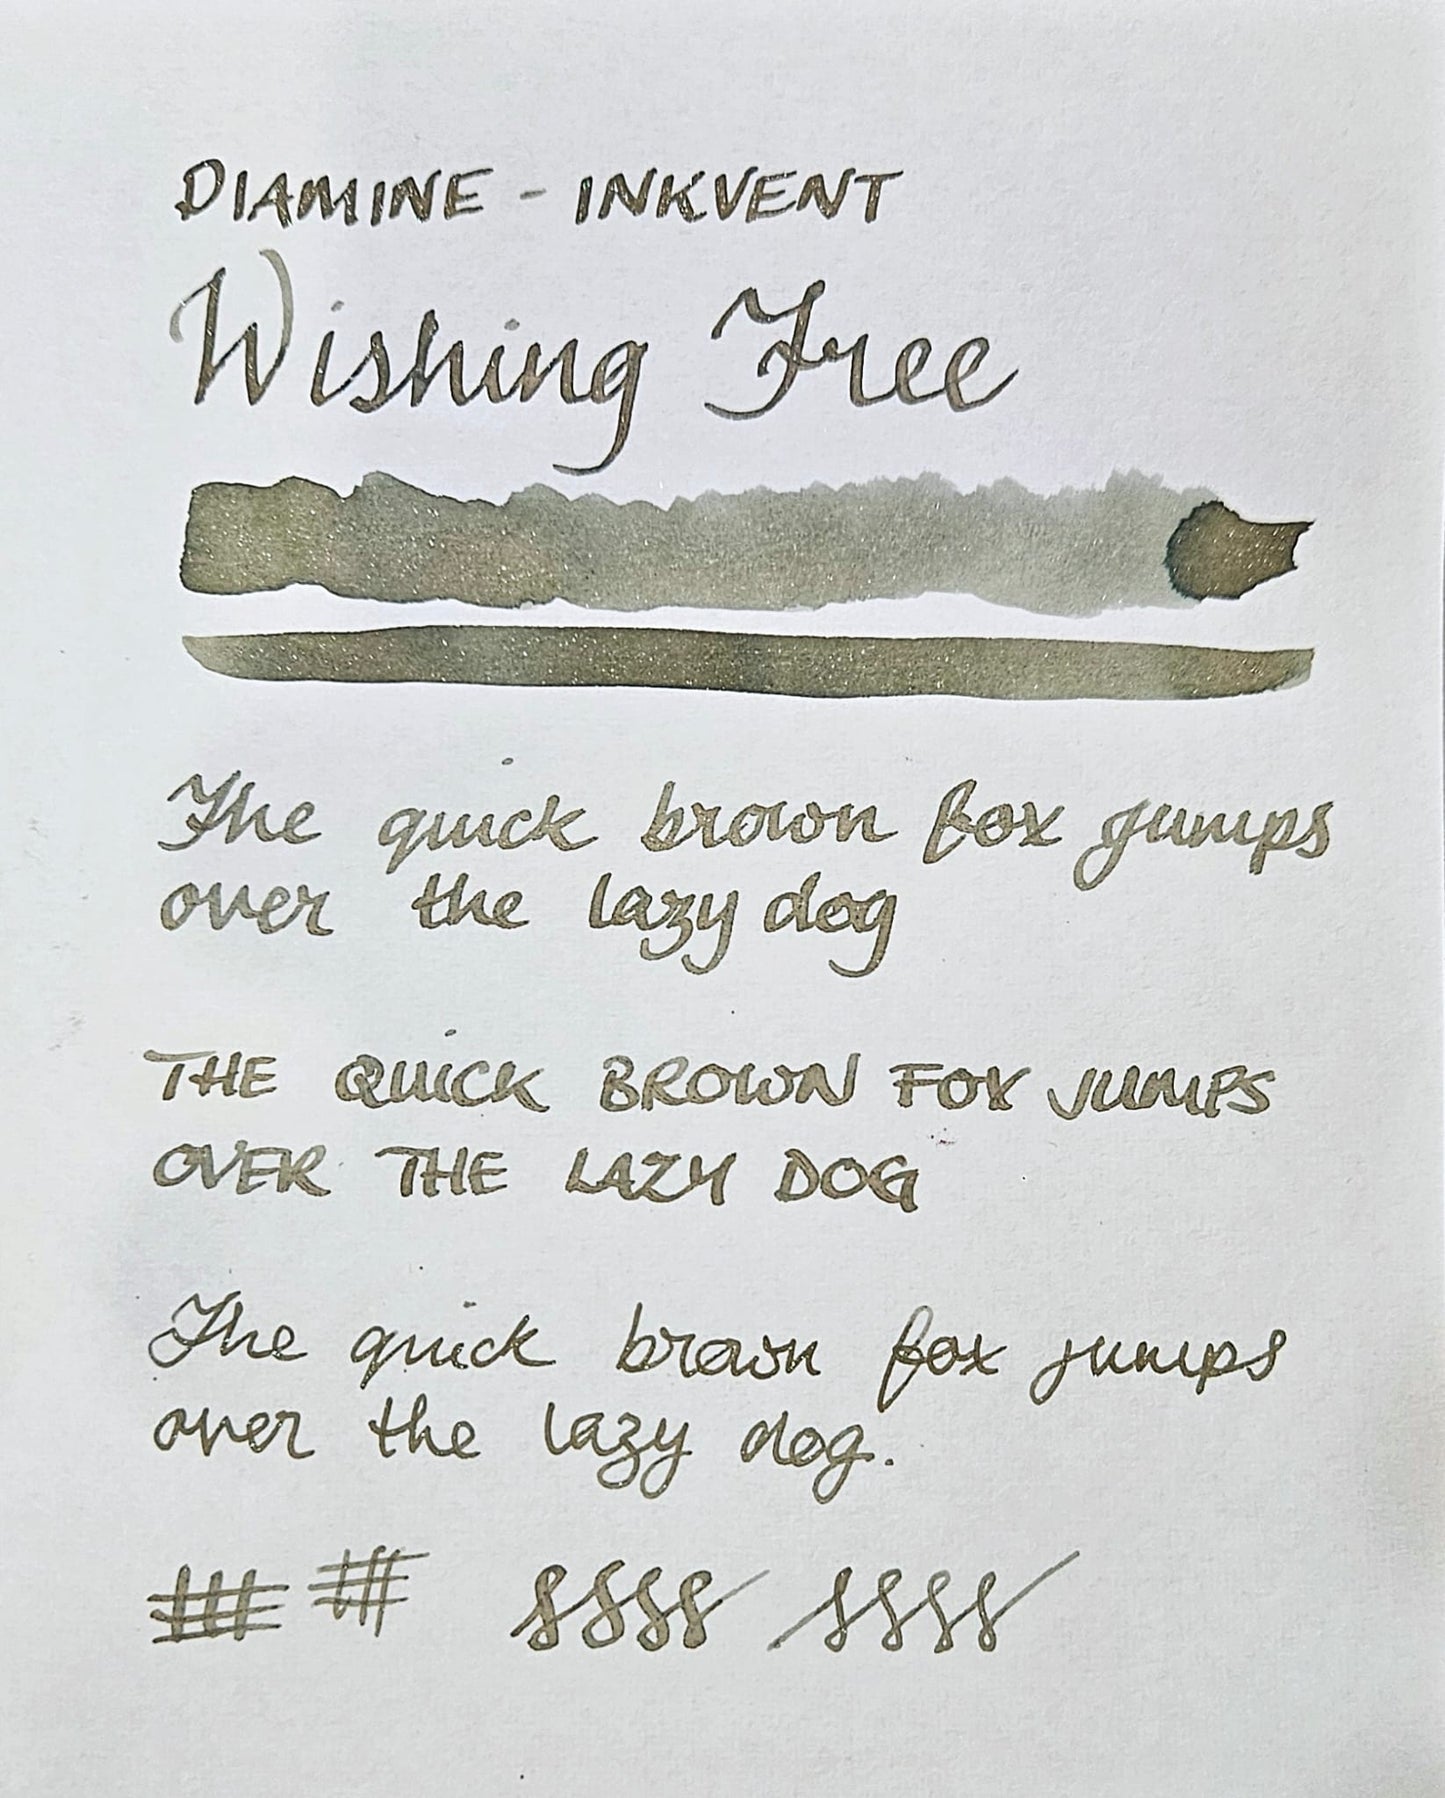 DIAMINE - INKVENT
Wishing Tree
The quick brown fox jumps
over the lazy dog
THE QUICK BROWN FOX JUMPS
OVER THE LAZY DOG
The quick brown fox jumps
over the lazy dog.